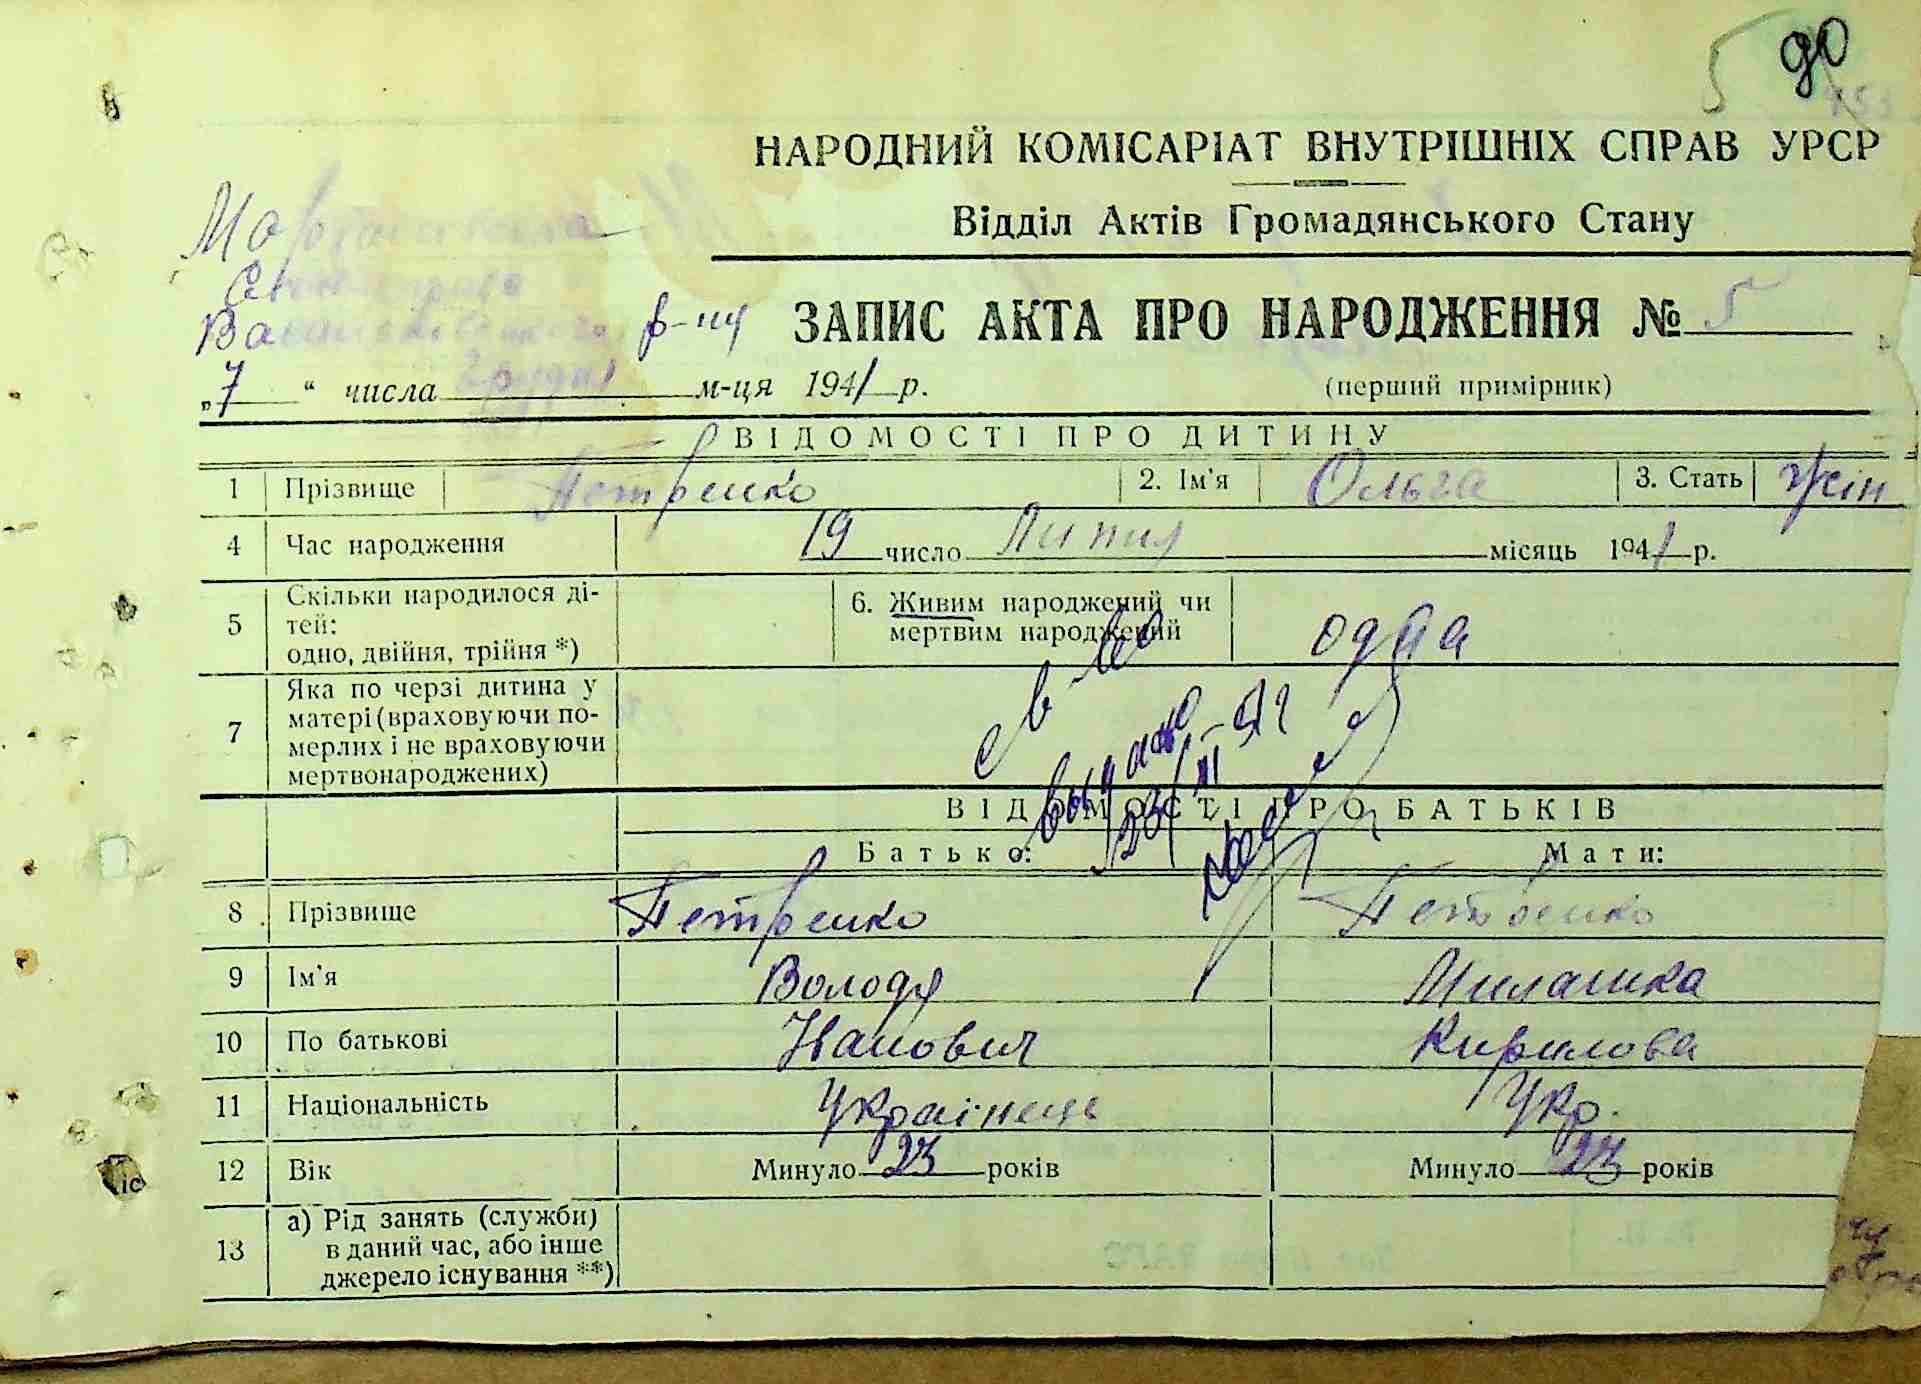 5 90
НАРОДНИЙ КОМІСАРІАТ ВНУТРІШНІХ СПРАВ УРСР
Відділ Актів Громадянського Стану
р-ну ЗАПИС АКТА ПРО НАРОДЖЕННЯ № 5
„7“ числа грудня м-ця 1941 р. (перший примірник)
ВІДОМОСТІ ПРО ДИТИНУ
1 Прізвище Петренко 2. Ім'я Ольга 3. Стать жін
4 Час народження 19 число Липня місяць 1941 р.
5 Скільки народилося ді-
тей:
одно, двійня, трійня *)
6. Живим народжений чи
мертвим народжений
одна
7 Яка по черзі дитина у
матері (враховуючи по-
мерлих і не враховуючи
мертвонароджених)
с в во
выдано
23/VI-51г
ВІДОМОСТІ ПРО БАТЬКІВ
Батько: Мати:
8 Прізвище Петренко Петренко
9 Ім'я Володя Милашка
10 По батькові Иванович Кирилова
11 Національність Українець Укр.
12 Вік Минуло 23 років Минуло 23 років
13 а) Рід занять (служби)
в даний час, або інше
джерело існування **)